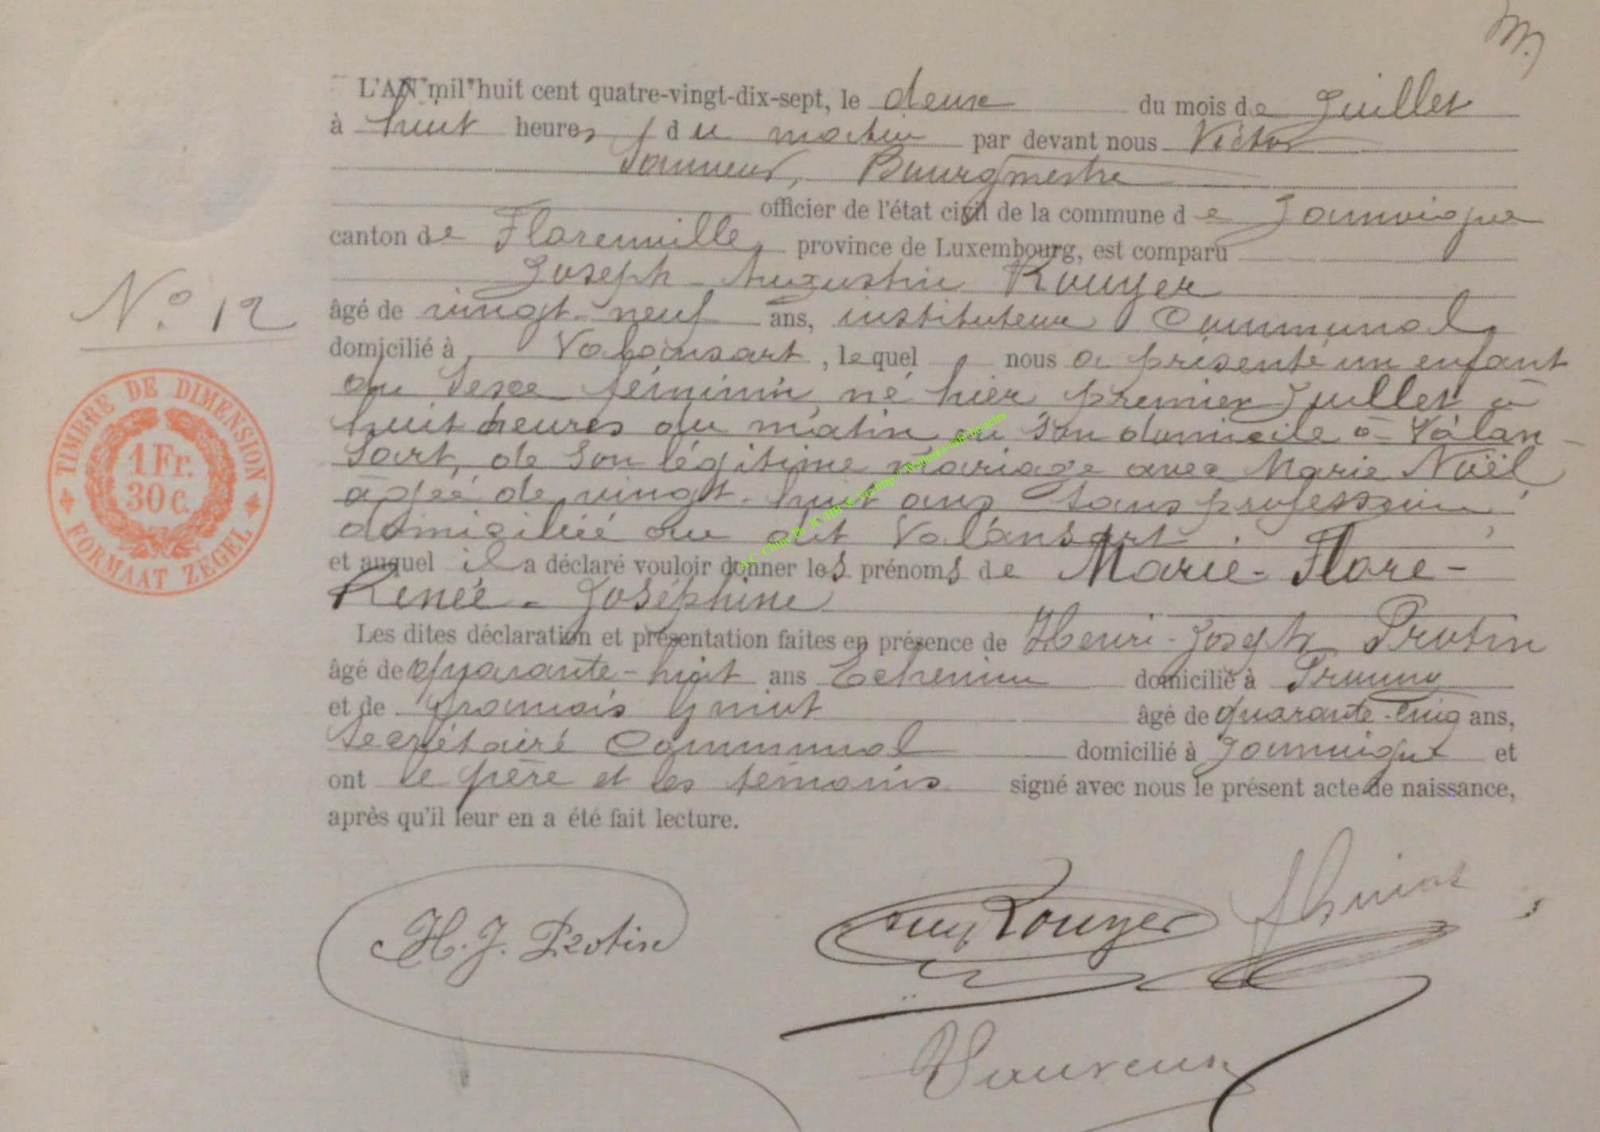 L'AN mil huit cent quatre-vingt-dix-sept, le deux du mois de Juillet
à huit heures du matin par devant nous Victor
Bourgmestre
officier de l'état civil de la commune de Jamoigne
canton de Florenville, province de Luxembourg, est comparu
Joseph Augustin Rouyer
N.o 12
âgé de vingt-neuf ans, instituteur Communal,
domicilié à Valansart, lequel nous a présenté un enfant
du sexe féminin, né hier premier Juillet à
huit heures du matin en son domicile à Valan-
sart, de son légitime mariage avec Marie Noël
âgée de vingt-huit ans sans profession,
domiciliée au dit Valansart
et auquel il a déclaré vouloir donner les prénoms de Marie-Flore-
Renée-Joséphine
Les dites déclaration et présentation faites en présence de Henri-Joseph Protin
âgé de quarante-huit ans domicilié à
et de François âgé de quarante-cinq ans,
Secrétaire Communal domicilié à Jamoigne et
ont le père et les témoins signé avec nous le présent acte de naissance,
après qu'il leur en a été fait lecture.
TIMBRE DE DIMENSION
1 Fr.
30 c.
FORMAAT ZEGEL
H. J. Protin
Aug Rouyer